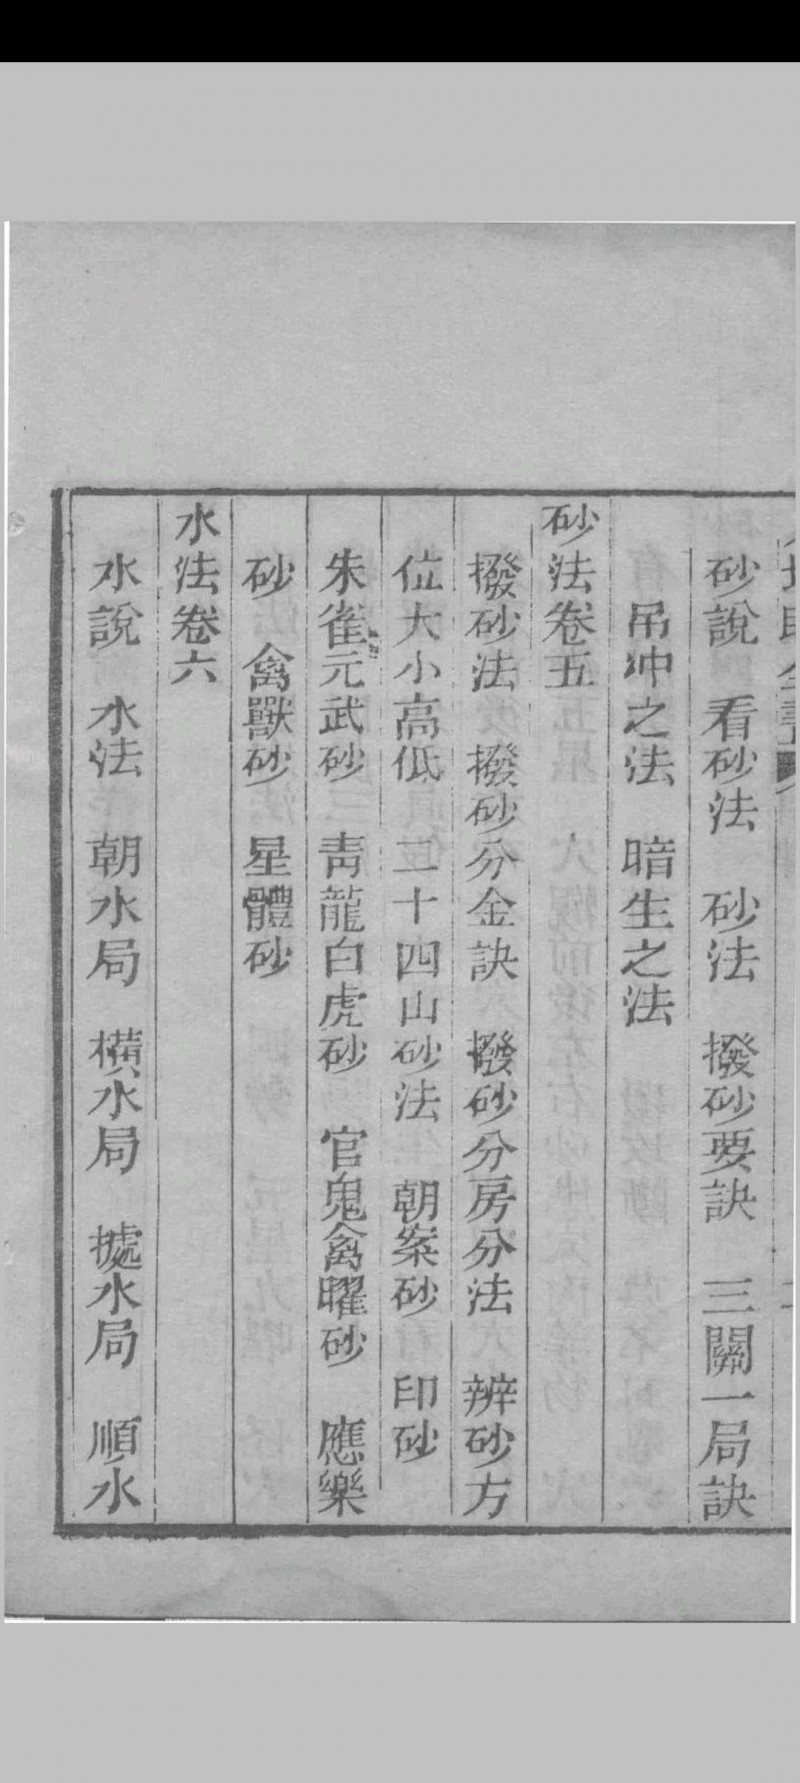 砂說　看砂法　砂法　撥砂要訣　三關一局訣
吊冲之法　暗生之法
砂法卷五
撥砂法　撥砂分金訣　撥砂分房分法　辨砂方
位大小高低　二十四山砂法　朝案砂　印砂
朱雀元武砂　靑龍白虎砂　官鬼禽曜砂　應樂
砂　禽獸砂　星體砂
水法卷六
水說　水法　朝水局　橫水局　據水局　順水